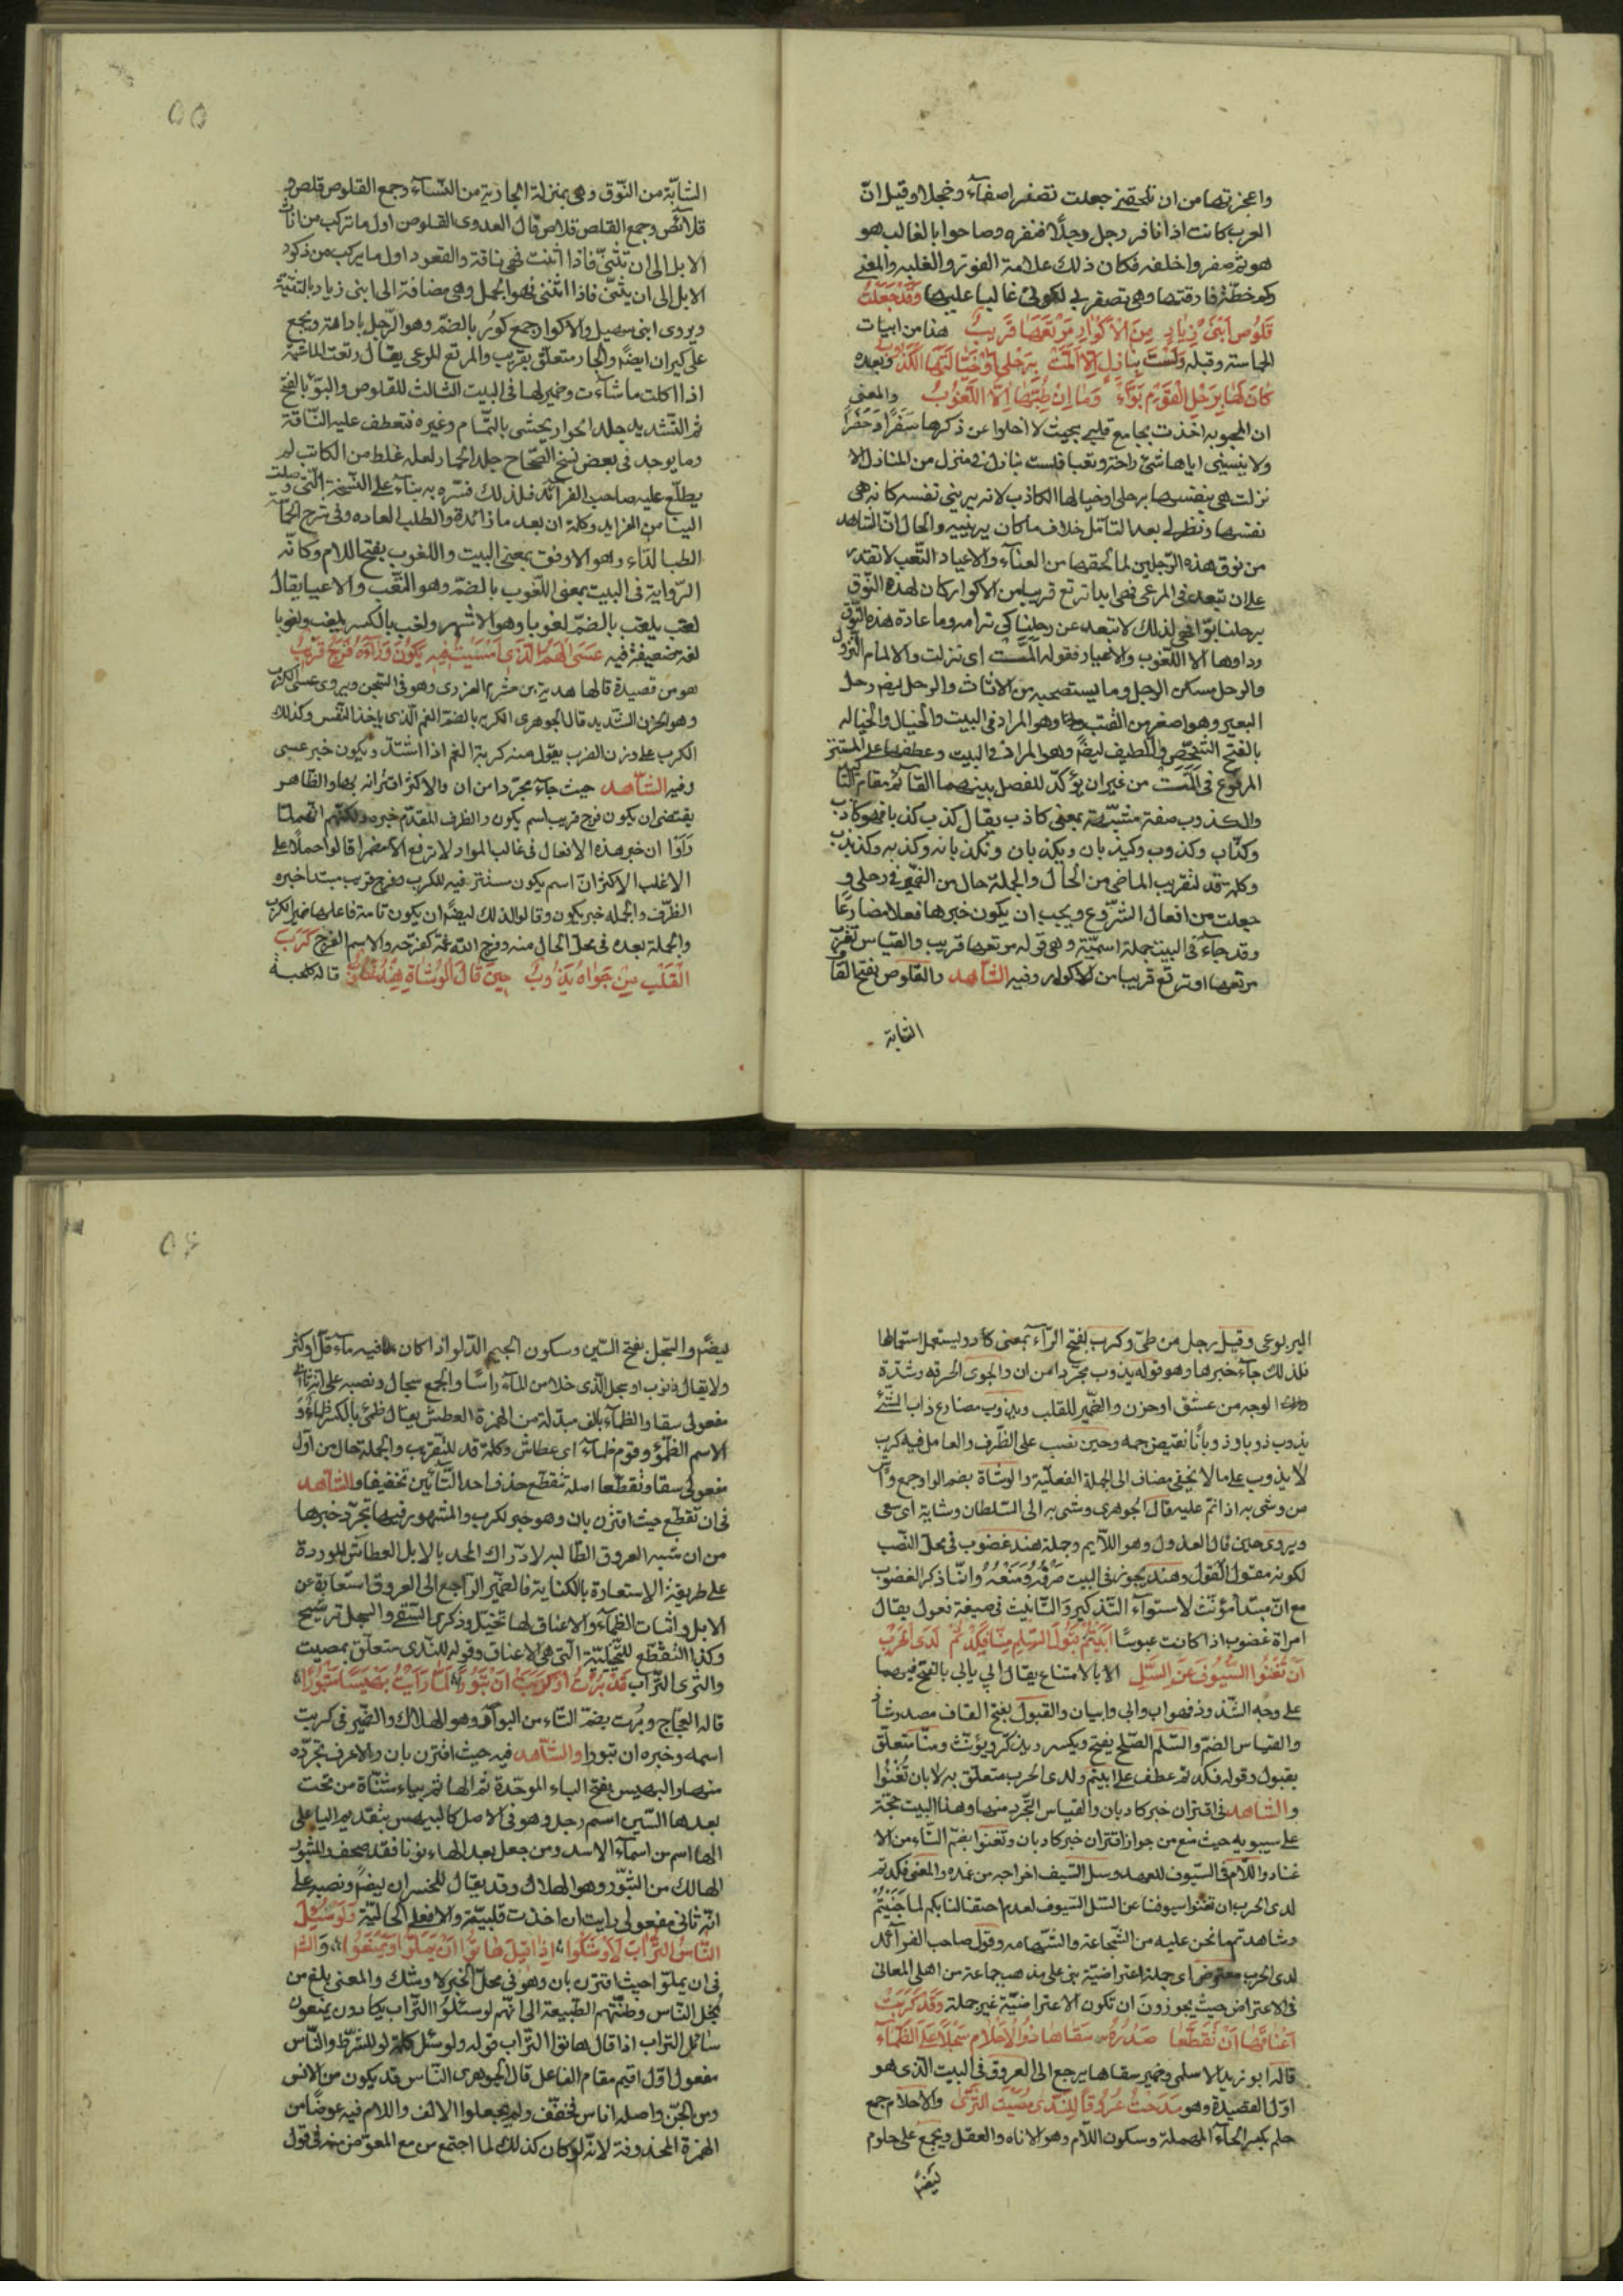 واعجزتها من ان تلحقني جعلت تصفر اصفآء وخجلا وقيل انّ
العرب كانت اذا نافر رجل رجلًا فنفره وصاحوا بالغالب هو
هو ثم صفر واخلفه فكان ذلك علامة الفوز والغلبه والمعنى
وكم خطّة فارقتها وهي تصفر لى لكونى غالبا عليها وَقَدْ جَعَلَتْ
قَلُوصُ ابْنَىْ زِيَادٍ مِنَ الْاَكْوَارِ مَرْتَعُهَا قَرِيبُ هذا من ابيات
الحماسة وقبله وَلَسْتُ بِنَازِلٍ اِلَّا اَلَمَّتْ بِرَحْلِى اَوْ خَيَالَتُهَا الْكَذُوبُ وبعده
كَاَنَّ لَهَا بِرَحْلِ الْقَوْمِ بَوًّا وَمَا اِنْ طِبُّهَا اِلَّا اللَّغُوبُ والمعنى
ان المحبوبه اخذت بجامع قلبى بحيث لا اخلوا عن ذكرها سَفَرًا وَحَضَرًا
ولا ينسينى اياها شئ راحة وتعبا فلست بنازل فى منزل من المنازل الا
نزلت هى بنفسها برحلى او خيالها الكاذب لانه يرينى نفسه كانه هى
نفسها ونظر لى بعد التأمّل خلاف ما كان يرينيه والحال انّ الشاهد
من نوق هذه الرّجلين لما لحقها من العنآء والاعياء والتّعب لا تقدر
على ان تبعد فى المرعى فهى ابدا ترتع قريبا من الاكوار كان لهذه النّوق
برحلنا بوّا فهى لذلك لا تبعد عن رحلنا كى ترامه وما عادة هذه النّوق
وداوها الا اللّغوب والاعياء فقوله اَلَمَّتْ اى نزلت والالمام النّزول
والرحل مسكن الرجل وما يستصحبه من الاثاث والرحل ايضا رحل
البعير وهو اصغر من القتب وهو المراد فى البيت والخيال والخياله
بالفتح الشخص والطيف ايضًا وهو المراد فى البيت وعطفها على المستتر
المرفوع فى اَلَمَّتْ من غير ان يؤكّد للفصل بينهما القآئم مقام التأكيد
والكذوب صفة مشبّهة بمعنى كاذب يقال كذب كذبا فهو كاذب
وكذّاب وكذوب وكيذبان ويكذبان ومكذبانه وكذبه وكذبذب
وكلمة قد لتقريب الماضى من الحال والجملة حال من الضمير فى رحلى و
جعلت من افعال الشّروع ويجب ان يكون خبرها فعلا مضارعًا
وقد جآء فى البيت جملة اسميّة وهى قوله مرتعها قريب والقياس تقرّب
مرتعها او ترتع قريبا من الاكوار وفيه الشّاهد والقلوص بفتح القاف
الشابة
٥٥
الشابّة من النّوق وهى بمنزلة الجارية من النّسآء وجمع القلوص قلص و
قلائص وجمع القلص قلاص قال العدوى القلوص اول ما تركب من اناث
الابل الى ان تثنىّ فاذا اثنت فهى ناقة والقعود اول ما يركب من ذكور
الابل الى ان يثنّى فاذا اثنى فهو الجمل وهى مضافة الى ابنى زياد بالتثنية
ويروى ابنى سهيل والاكوار جمع كور بالضمّ وهو الرّحل باداته ويجمع
على كيران ايضًا والجار متعلق بقريب والمرتع للوعى يقال رتعت الماشية
اذا اكلت ما شآءت وضمير لها فى البيت الثالث للقلوص والبوّ بالفتح
ثم التّشديد جلد الحوار يحشى بالثّمام وغيره فتعطف عليه النّاقة
وما يوجد فى بعض نسخ الصّحاح جلد الحمار لعله غلط من الكاتب لم
يطلّع عليه صاحب الفرآئد فلذلك فسّره به بنآء على النّسخة الّتى وصلت
الطب الدّاء وهو الاوفق بمعنى البيت واللغوب بفتح اللام وكانّه
الرّواية فى البيت بمعنى اللّغوب بالضمّ وهو التّعب والاعيا يقال
لغب يلغب بالضمّ لغوبا وهو الاشهر ولغب بالكسر يلغب ولغوبا
لغة ضعيفة فيه عَسَى الْهَمُّ الَّذِى اَمْسَيْتُ فِيهِ يَكُونُ وَرَاءَهُ فَرَجٌ قَرِيبُ
هو من قصيدة قالها هدبة بن خشرم العزرى وهو فى السّجن ويروى عسى الكرب
وهو الحزن الشّديد قال الجوهرى الكربة بالضمّ الغم الّذى ياخذ النّفس وكذلك
الكرب على وزن الضرب يقول منه كربه الغم اذا اشتدّ ويكون خبر عسى
وفيه الشّاهد حيث جآء مجرّدا من ان والاكثر اقترانه بها والظّاهر
يقتضى ان يكون فرج قريب اسم يكون والظرف المقدّم خبره ولكنّهم لمّا
رَاَوْا ان خبر هذه الافعال فى غالب المواد لا ترفع الا مضمرا قالوا حملًا على
الاغلب الاكثر انّ اسم يكون مستتر فيه للكرب وفرج قريب مبتدا خبره
الظرف والجمله خبر يكون وقالوا لذلك ايضًا ان يكون تامّة فاعلها ضمير الكرب
والجملة بعده فى محل الحال منه وفرج اللّه غمّه كفرّجه والاسم الفرج كَرَبَ
الْقَلْبُ مِنْ جَوَاهُ يَذُوبُ حِينَ قَالَ الْوُشَاةُ هِنْدٌ غَضُوبُ قاله كلحبة
اليربوعى وقيل رجل من طىّ وكرب بفتح الرّآء بمعنى كاد ويستعمل استعمالها
فلذلك جآء خبرها وهو قوله يذوب مجرّدا من ان والجوى الحرقه وشدّة
الوجه من عشق او حزن والضّمير للقلب ويذوب مضارع ذاب الشّئ
يذوب ذوبا وذوبانًا نقيض جمد وحين نصب على الظّرف والعامل فيه كرب
لا يذوب على ما لا يخفى مضاف الى الجملة الفعليّة والوشاة بضم الواو جمع واش
من وشى به اذا نمّ عليه قال الجوهرى وشى به الى السّلطان وشاية اى سعى
ويروى حين قال العذول وهو اللّايم وجملة هند غضوب فى محلّ النّصب
لكونه مقول القول وهند يجوز فى البيت صرفه ومنعه وانّما ذكر الغضوب
مع انّ مبتدأ مؤنّث لاستوآء التّذكير والتّانيث فى صيغة فعول يقال
امراة غضوب اذا كانت عبوسًا اَبَيْتُمْ قَبُولَ السِّلْمِ مِنَّا فَكِدْتُمْ لَدَى الْحَرْبِ
اَنْ تُغْنُوا السُّيُوفَ عَنِ السَّلِّ الابا الامتناع يقال ابى يابى بالفتح فيهما
على وجه الشّذوذ فهو اب وابى وابيان والقبول بفتح القاف مصدر شاذ
والقياس الضمّ والسّلم الصّلح يفتح ويكسر ويذكّر ويؤنّث ومنّا متعلّق
بقبول وقوله فكدتم عطف على ابيتم ولدى الحرب متعلّق به لا بان تُغْنُوا
والشاهد فى اقتران خبر كاد بان والقياس التّجرّد منها وهذا البيت حجّة
على سيبويه حيث منع من جواز اقتران خبر كاد بان وتغنوا بضمّ التّاء من الا
غناء واللّام فى السّيوف للعهد وسل السّيف اخراجه من غمده والمعنى فكدتم
لدى الحرب ان تغنوا سيوفنا عن السّل السّيوف لعدم احتفالنا بكم لما جَنَيْتُمْ
وشاهدتم ما نحن عليه من الشّجاعة والشّهامه وقول صاحب الفرآئد
لدى الحرب معترض اى جملة اعتراضيّة بنى على مذهب جماعة من اهل المعانى
فى الاعتراض حيث يجوزون ان تكون الاعتراضيّة غير جملة وَقَدْ كَرَبَتْ
اَعْنَاقُهَا اَنْ تَقَطَّعَا صدره سَقَاهَا ذَوُو الْاَحْلَامِ سَجْلًا عَلَى الظَّمَآءِ
قاله ابو زيد الاسلمى وضمير سقاها يرجع الى العروق فى البيت الّذى هو
اوّل القصيدة وهو مَدَحْتُ عُرُوقًا لِلنَّدَى مَصَّتِ الثَّرَى والاحلام جمع
حلم بكسر الحآء المهملة وسكون اللّام وهو الاناه والعقل ويجمع على حلوم
ايضًا
٥٦
ايضًا والسّجل بفتح السّين وسكون الجيم الدّلو اذا كان فيه مآء قلّ او كثر
ولا يقال ذنوب او سجل الّذى خلا من المآء راسًا والجمع سجال ونصبه على انّه ثانى
مفعولى سقا والظمآء بالف مبدلة من الهمزة العطش يقال ظمئ بالكسر ظمأ و
الاسم الظّمؤ وقوم ظمآء اى عطاش وكلمة قد للتّقريب والجملة حال من اوّل
مفعولى سقا وتقطّعا اصله تتقطّع حذف احد التّآئين تخفيفا والشّاهد
فى ان تقطّع حيث اقترن بان وهو خبر لكرب والمشهور فيها تجرّد خبرها
من ان شبه العروق الطّالبه لادرآك المجد بالابل العطاش للوردة
على طريقة الاستعارة بالكناية فالضّمير الرّاجع الى العروق استعارة عن
الابل واثبات الظّمآء والاعناق لها تخييل وذكرى السّقى والسجل ترشيح
وكذا التّقطّع للتّخييليّة الّتى هى الاعناق وقوله للنّدى متعلّق بمصّت
والثّرى التّراب قَدْ بُرْتَ اَوْ كَرَبْتَ اَنْ تَبُورَا لَمَّا رَاَيْتَ بَيْهَسًا مَثْبُورًا
قاله العجّاج وبُرت بضمّ التّاء من البوآر وهو الهلاك والضّمير فى كربت
اسمه وخبره ان تبورا والشّاهد فيه حيث اقترن بان والاعرف تجرّده
منها والبهيس بفتح الباء الموحّدة ثم الها ثم بياء مثنّاة من تحت
بعدها السّين اسم رجل وهو فى الاصل كالبيهس بتقديم اليا على
الها اسم من اسمآء الاسد ومن جعل بعد الهاء نونا فقد صحف والمثبور
الهالك من الثبّور وهو الهلاك وقد يقال للخسران ايضًا ونصبه على
انّه ثانى مفعولى رايت ان اخذت قلبيّة والا فعلى الحاليّة وَلَوْ سُئِلَ
النَّاسُ التُّرَابَ لَاَوْشَكُوا اِذَا قِيلَ هَاتُوا اَنْ يَمَلُّوا وَيَمْنَعُوا والشا
فى ان يملّوا حيث اقترن بان وهو فى محلّ الخبر لاوشك والمعنى بلغ من
بخل النّاس وظنّتهم الطّبيعة الى انّهم لو سئلوا التّراب يكادون يمنعون
سائل التراب اذا قال هاتوا التّراب قوله ولو سئل كلمة لو للشّرط والنّاس
مفعول اوّل اقيم مقام الفاعل قال الجوهرى النّاس قد يكون من الانس
ومن الجنّ واصله اناس فخفّف ولم يجعلوا الالف واللام فيه عوضًا من
الهمزة المحذوفة لانّه لو كان كذلك لما اجتمع مع المعوّض منه فى قول